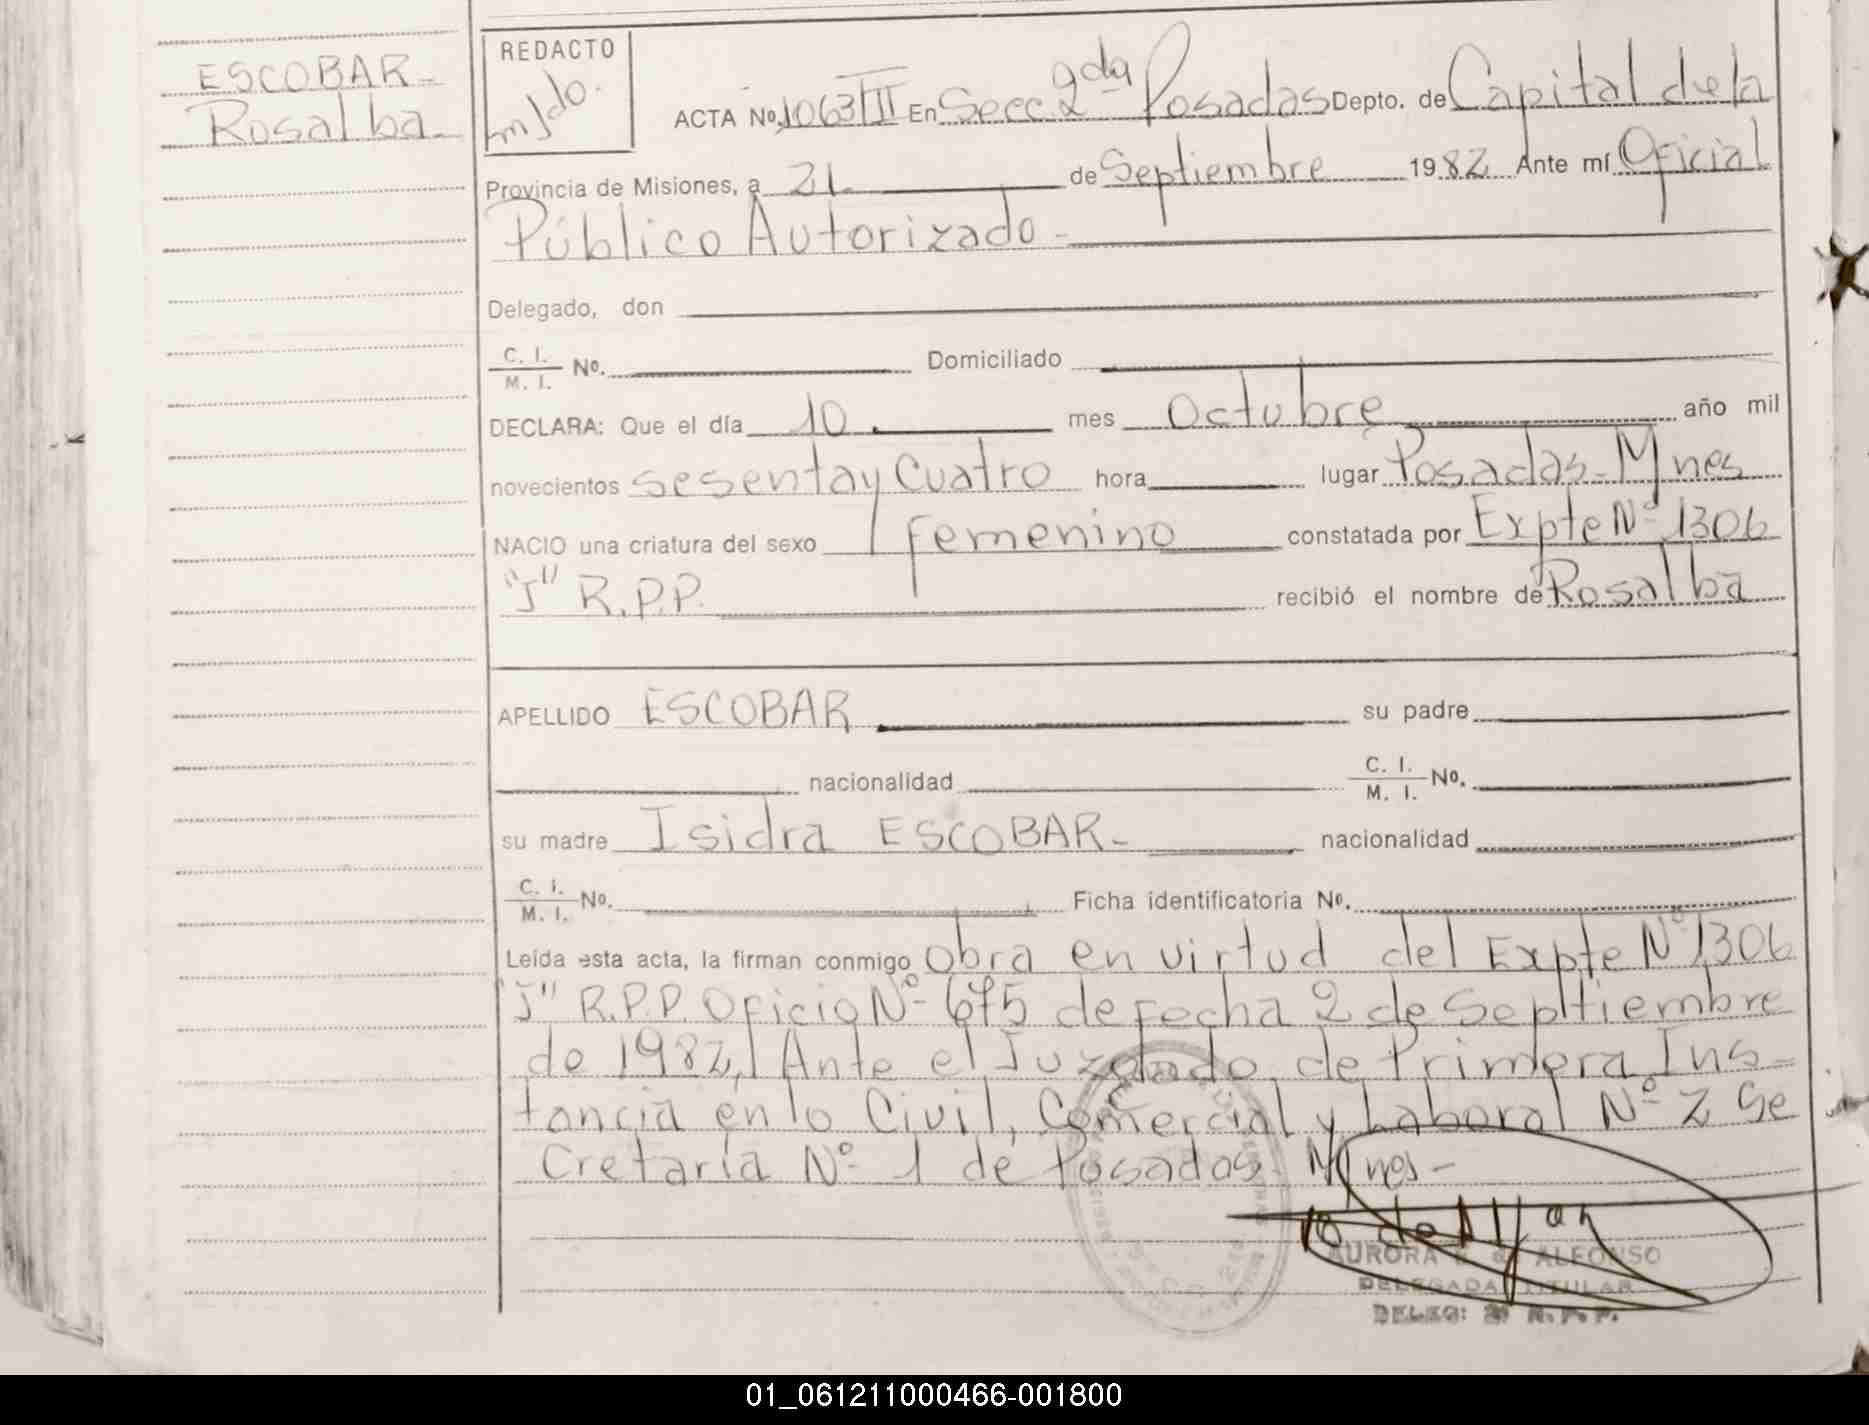 ESCOBAR-
Rosalba.
REDACTO
ACTA No. 1063 III En Secc. 2da Posadas Depto. de Capital de la
Provincia de Misiones, a 21. de Septiembre 1982 Ante mí Oficial
Público Autorizado-
Delegado, don
C. I.
M. I. No. Domiciliado
DECLARA: Que el día 10. mes Octubre año mil
novecientos sesenta y Cuatro hora lugar Posadas-Mnes
NACIO una criatura del sexo femenino constatada por Expte Nº 1306
"J" R.P.P. recibió el nombre de Rosalba
APELLIDO ESCOBAR su padre
nacionalidad C. I.
M. I. No.
su madre Isidra ESCOBAR- nacionalidad
C. I.
M. I. No. Ficha identificatoria No.
Leída esta acta, la firman conmigo Obra en virtud del Expte Nº 1306
"J" R.P.P. Oficio Nº 675 de fecha 2 de Septiembre
de 1982, Ante el Juzgado de Primera Ins-
tancia en lo Civil, Comercial y Laboral Nº 2 Se
cretaría Nº 1 de Posadas- Mnes-
AURORA ALFONSO
DELEGADA TITULAR
DELEG: 2ª R.P.P.
01_061211000466-001800